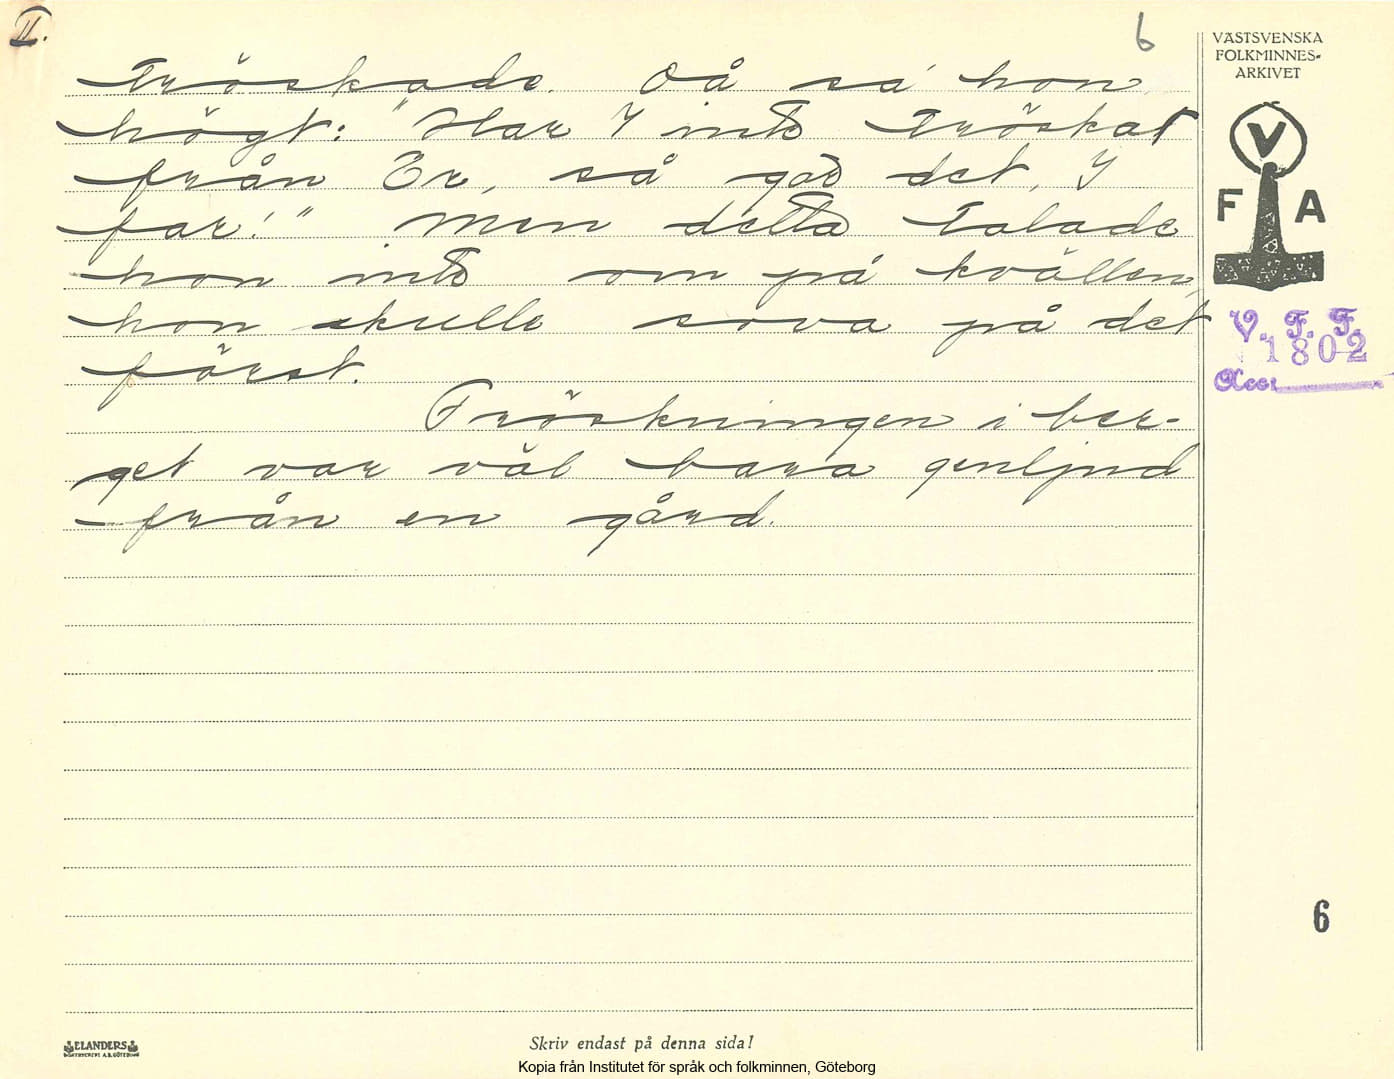 II.
6
VÄSTSVENSKA
FOLKMINNES-
ARKIVET
tröskade. Då sa' hon
högt: "Har I inte tröskat
från Er, så gör det, I
far!" Men detta talade
hon inte om på kvällen,
hon skulle sova på det
först.
Tröskningen i ber-
get var väl bara genljud
från en gård.
V
F A
V. F. F.
1802
Acc.
6
ELANDERS
BOKTRYCKERI A.B. GÖTEBORG
Skriv endast på denna sida!
Kopia från Institutet för språk och folkminnen, Göteborg